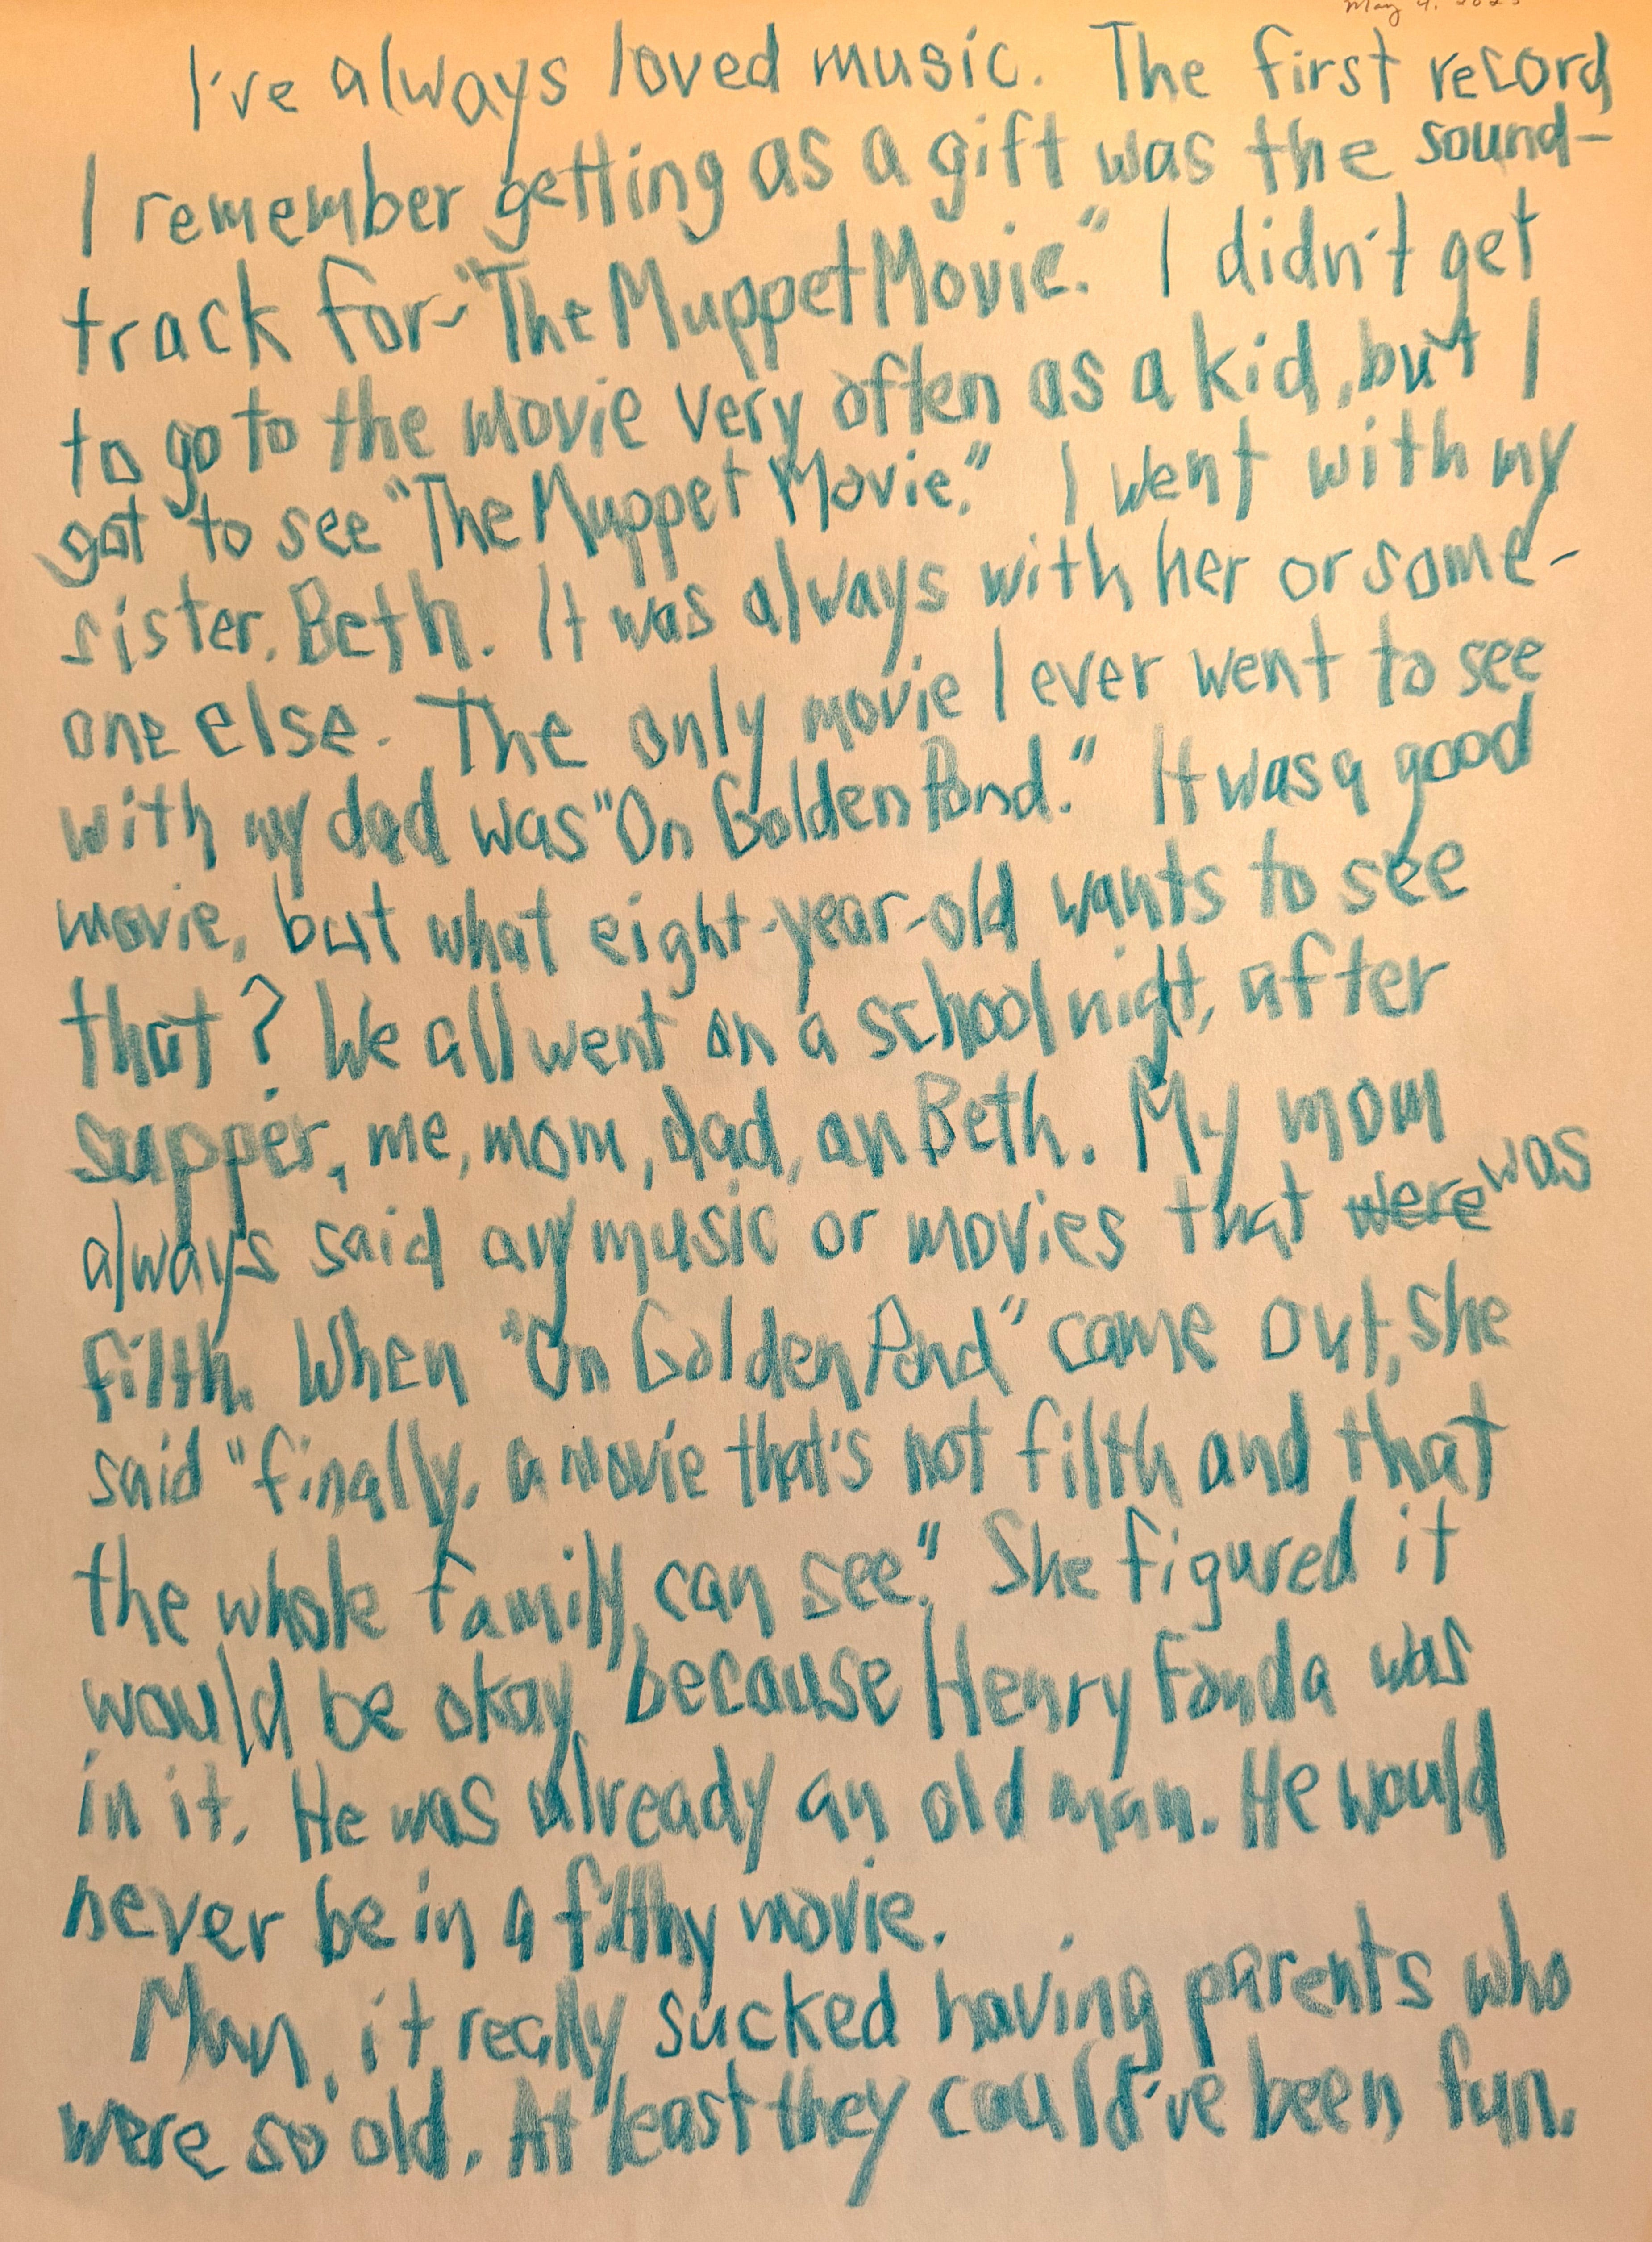 May 4, 2023
I've always loved music. The first record
I remember getting as a gift was the sound-
track for "The Muppet Movie." I didn't get
to go to the movie very often as a kid, but I
got to see "The Muppet Movie." I went with my
sister, Beth. It was always with her or some-
one else. The only movie I ever went to see
with my dad was "On Golden Pond." It was a good
movie, but what eight-year-old wants to see
that? We all went on a school night, after
supper, me, mom, dad, an Beth. My mom
always said any music or movies that were was
filth. When "On Golden Pond" came out, she
said "finally, a movie that's not filth and that
the whole family can see." She figured it
would be okay because Henry Fonda was
in it. He was already an old man. He would
never be in a filthy movie.
Man, it really sucked having parents who
were so old. At least they could've been fun.